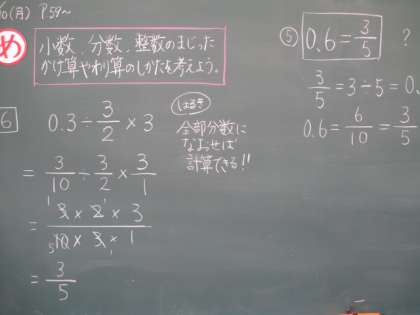 10(月) P59~
め
小数、分数、整数のまじった
かけ算やわり算のしかたを考えよう。
6
0.3÷3/2×3
はるき
全部分数に
なおせば
計算できる!!
=3/10÷3/2×3/1
=3×2×3/10×3×1
1 1
5 1
=3/5
⑤ 0.6=3/5 ?
3/5=3÷5=0.
0.6=6/10=3/5